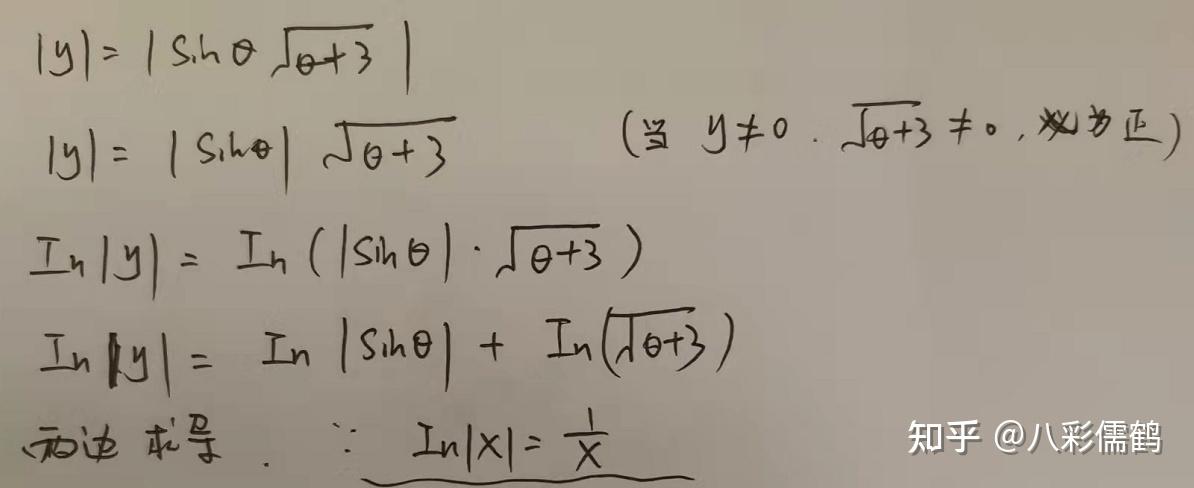 |y|= |Sinθ √(θ+3)|
|y|= |Sinθ| √(θ+3) (当 y≠0. √(θ+3) ≠0, 必为正)
In|y| = In(|Sinθ|·√(θ+3))
In|y| = In |Sinθ| + In(√(θ+3))
两边求导. ∵ In|X|= 1/X
知乎 @八彩儒鹤